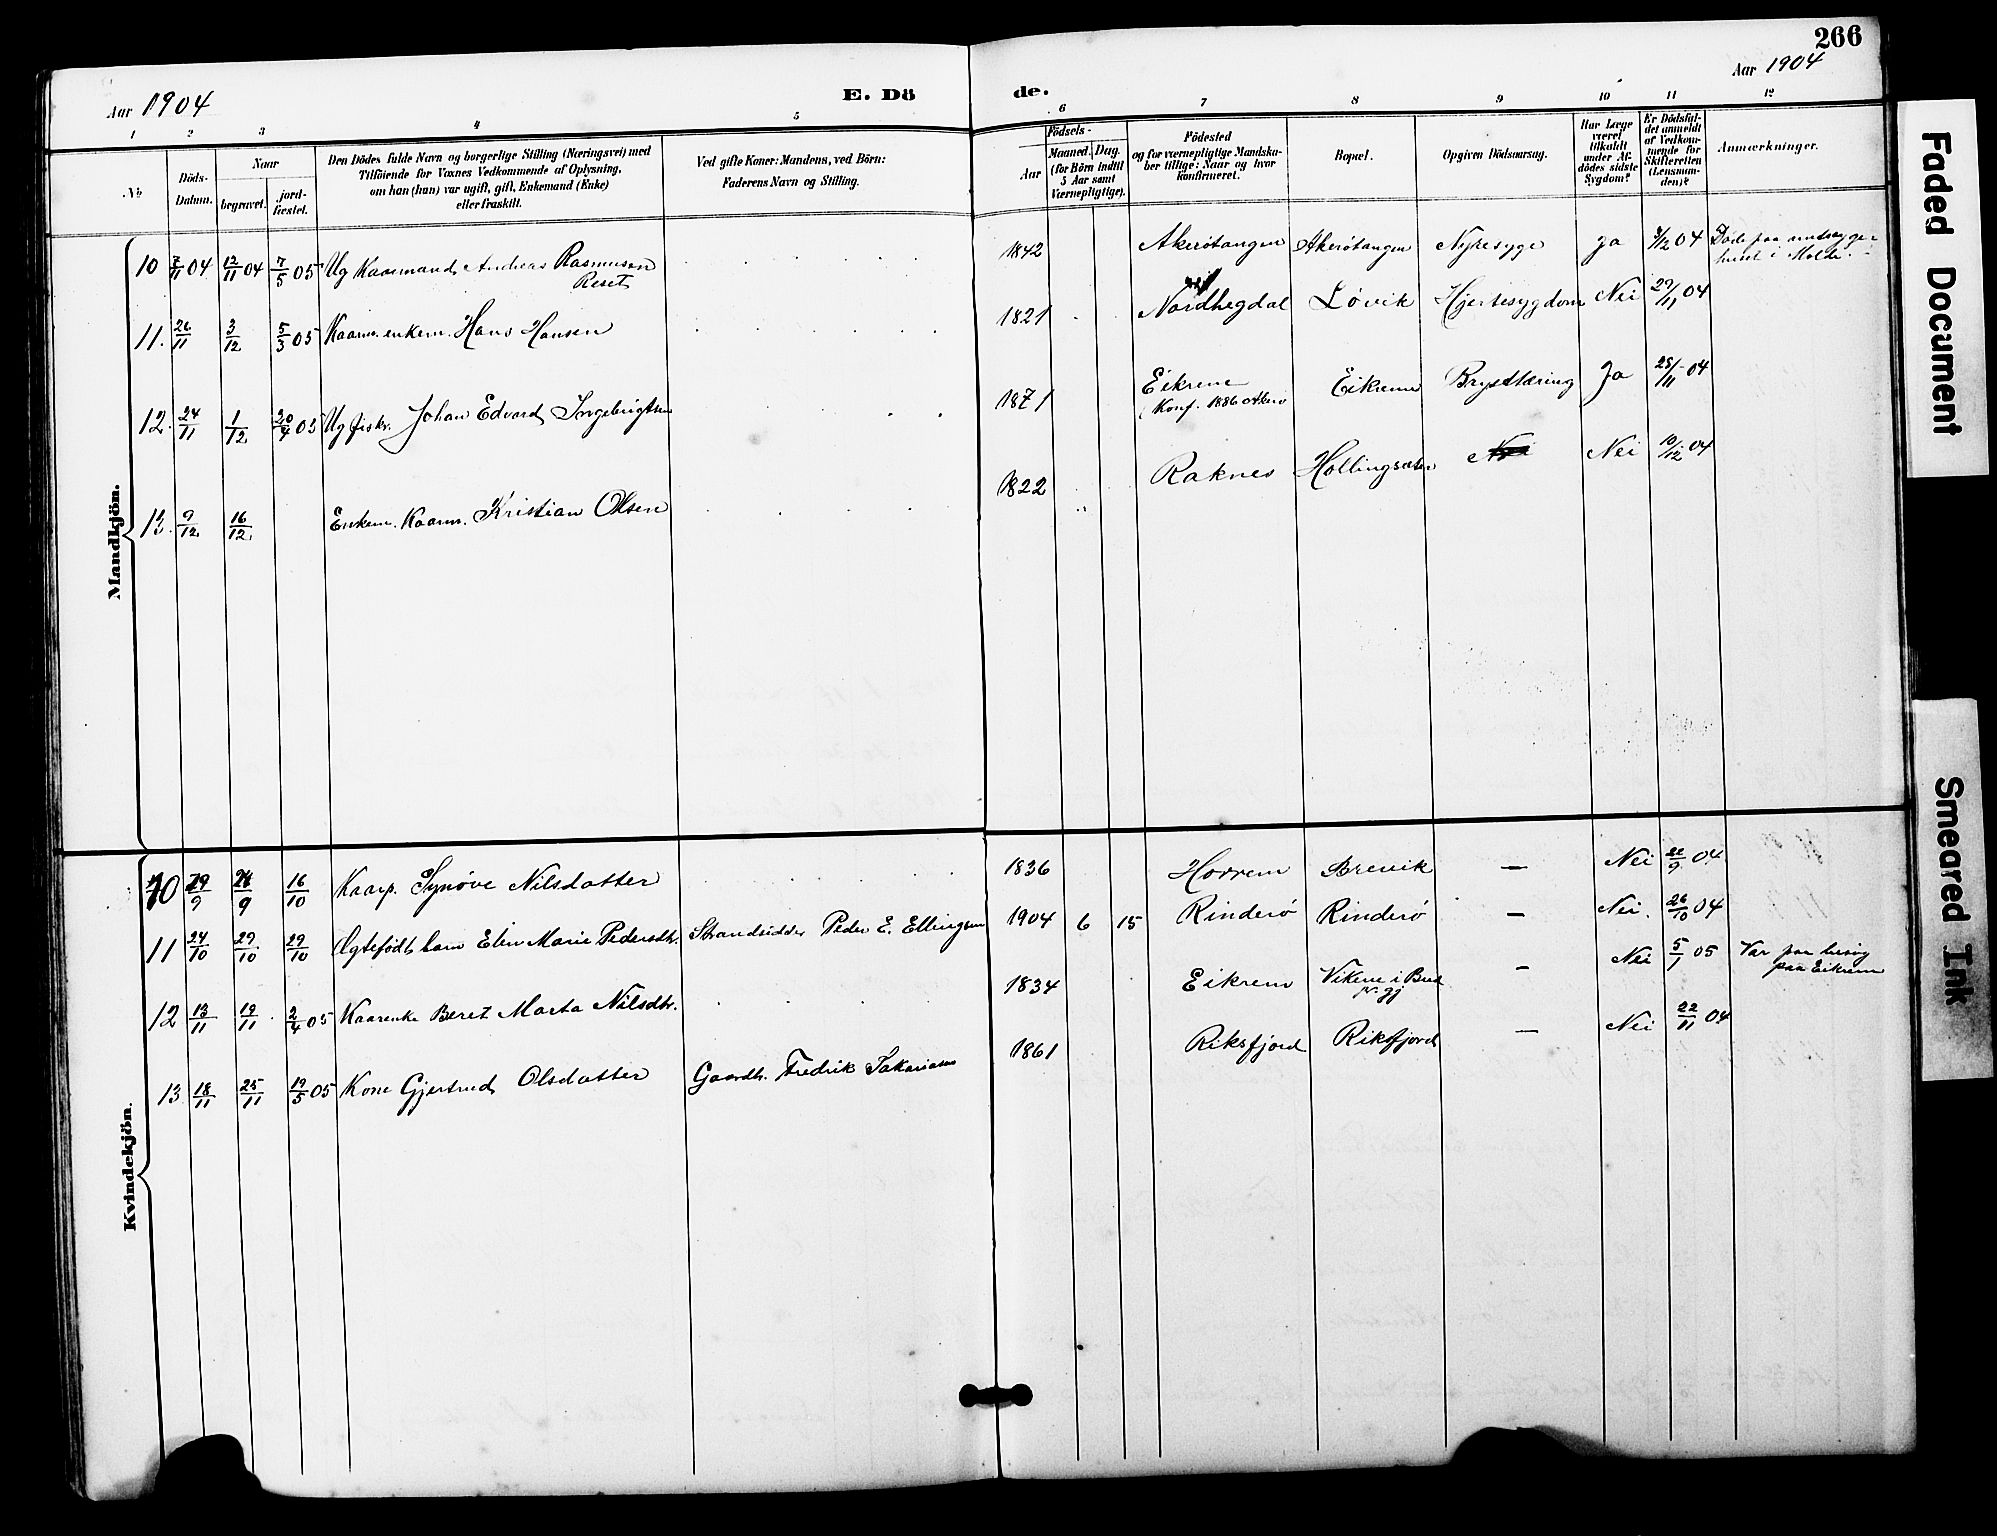 266
Aar 1904
E. Dö
de.
Aar 1904
1 2 3 4 5 6 7 8 9 10 11 12
No
Döds-
Datum.
Naar
begravet.
jord-
fæstet.
Den Dödes fulde Navn og borgerlige Stilling (Næringsvei) med
Tilföiende for Voxnes Vedkommende af Oplysning,
om han (hun) var ugift, gift, Enkemand (Enke)
eller fraskilt.
Ved gifte Koner: Mandens, ved Börn:
Faderens Navn og Stilling.
Födsels-
Aar
Maaned. Dag.
(for Börn indtil
5 Aar samt
Værnepligtige).
Födested
og for værnepligtige Mandska-
ber tillige: Naar og hvor
konfirmeret.
Bopæl.
Opgiven Dödsaarsag.
Har Læge
været
tilkaldt
under Af-
dödes sidste
Sygdom?
Er Dödsfal-
det anmeldt
af Vedkom-
mende for
Skifteretten
(Lensman-
den)?
Anmærkninger.
Mandkjön.
10 7/11 04 12/11 04 7/5 05 Ug Kaarmand Andreas Rasmusen
Reset
1842 Akerøtangen Akerøtangen Nyresyge Ja 9/12 04 Døde paa amtssyge-
huset i Molde.
11. 26/11 3/12 5/3 05 Kaarm. enkem. Hans Hansen 1821 Nordhegdal Løvik Hjertesygdom Nei 29/11 04
12. 24/11 1/12 20/4 05 Ug fisk. Johan Edvard Ingebrigtsen 1871 Eikrem Eikrem Brysttæring Ja 25/11 04
Konf. 1886 Akerø
13. 9/12 16/12 Enkem. Kaarm. Kristian Olsen 1822 Raknes Hollingsæter Nei 10/12 04
Kvindekjön.
10 19/9 24/9 16/10 Kaarp. Synøve Nilsdatter 1836 Horrem Brevik — Nei 22/9 04
11 24/10 29/10 29/10 Ægtefødt barn Elen Marie Pedersdtr. Strandsidder Peder E. Ellingsen 1904 6 15 Rinderø Rinderø — Nei. 26/10 04
12 13/11 19/11 2/4 05 Kaarenke Beret Marta Nilsdtr. 1834 Eikrem Vikene i Bud
pr.gj
— Nei 5/1 05 Var paa besøg
paa Eikrem
13 18/11 25/11 19/5 05 Kone Gjertrud Olsdatter Gaardbr. Fredrik Sakariasen 1861 Riksfjord Riksfjord — Nei 22/11 04
Faded Document
Smeared Ink